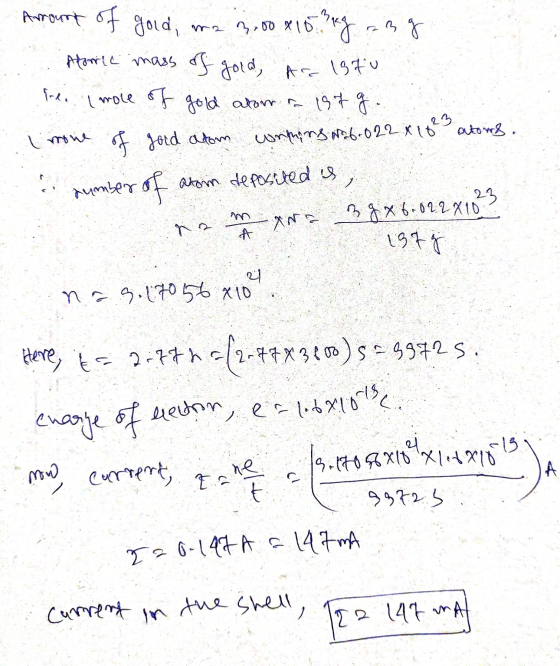 Amount of gold, m = 3.00 × 10⁻³ kg = 3 g
Atomic mass of gold, A = 197 u
i.e. 1 mole of gold atom = 197 g.
1 mole of gold atom contains N=6.022 × 10²³ atoms.
∴ number of atom deposited is,
n = m/A × N = 3 g × 6.022 × 10²³ / 197 g
n = 9.17056 × 10²¹.
Here, t = 2.77 h = (2.77 × 3600) s = 9972 s.
Charge of electron, e = 1.6 × 10⁻¹⁹ C.
now, current, I = ne/t = (9.17056 × 10²¹ × 1.6 × 10⁻¹⁹ / 9972 s) A
I = 0.147 A = 147 mA
Current in the shell, I = 147 mA